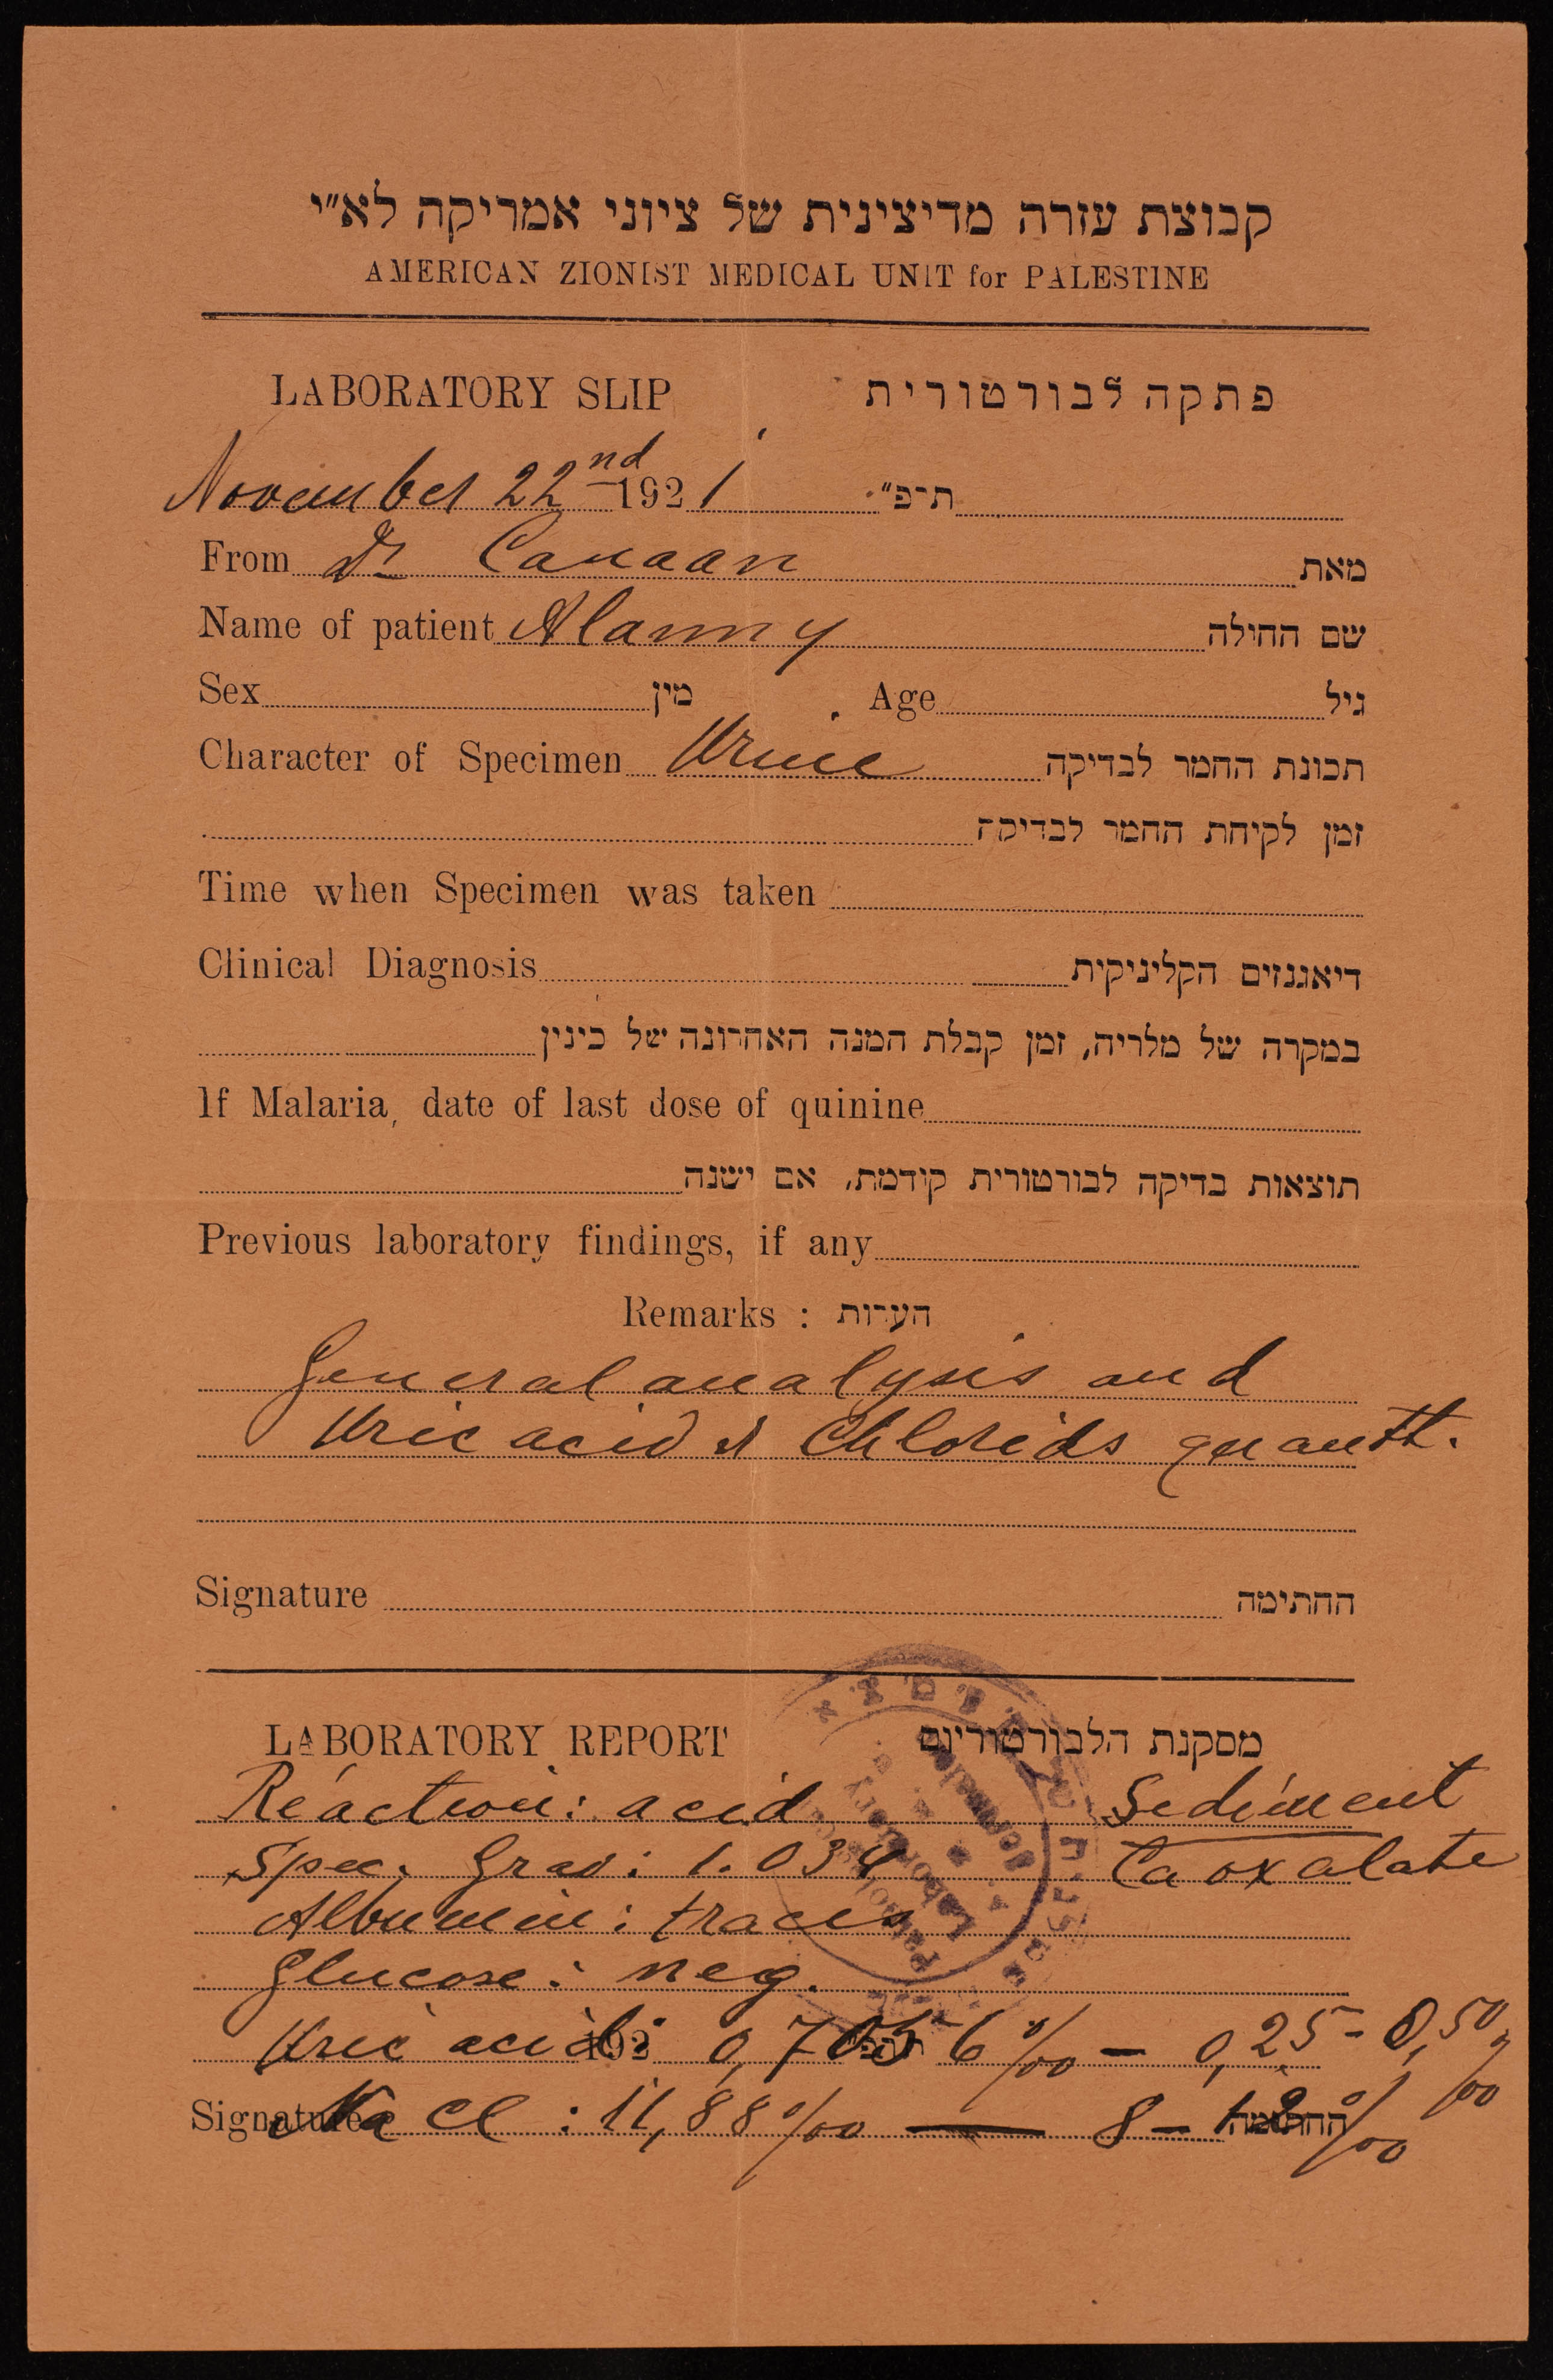 קבוצת עזרה מדיצינית של ציוני אמריקה לא"י
AMERICAN ZIONIST MEDICAL UNIT for PALESTINE
LABORATORY SLIP פתקה לבורטורית
November 22nd 1921 תרפ"
From Dr Canaan מאת
Name of patient Alammy שם החולה
Sex מין Age גיל
Character of Specimen Urine תכונת החמר לבדיקה
זמן לקיחת החמר לבדיקה
Time when Specimen was taken
Clinical Diagnosis דיאגנוזים הקליניקית
במקרה של מלריה, זמן קבלת המנה האחרונה של כינין
If Malaria, date of last dose of quinine
תוצאות בדיקה לבורטורית קודמת, אם ישנה
Previous laboratory findings, if any
Remarks : הערות
General analysis and
Uric acid & Chlorids quantt.
Signature החתימה
LABORATORY REPORT מסקנת הלבורטוריום
Reaction: acid Sediment
Spec. Grav: 1.034 Ca oxalate
Albumin: traces
Glucose: neg.
Uric acid: 192 0,7056 ‰ – 0,25 - 0,50 ‰
Signature Na Cl : 11,88 ‰ — 8 – 12 ‰ החתימה
Pathological
Laboratory